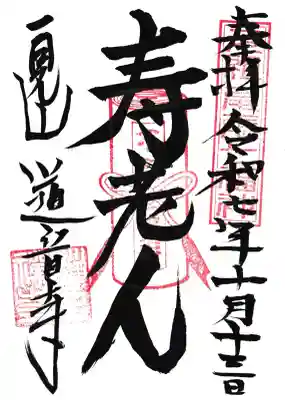 奉拝 令和七年十月十三日
寿老人
道音寺